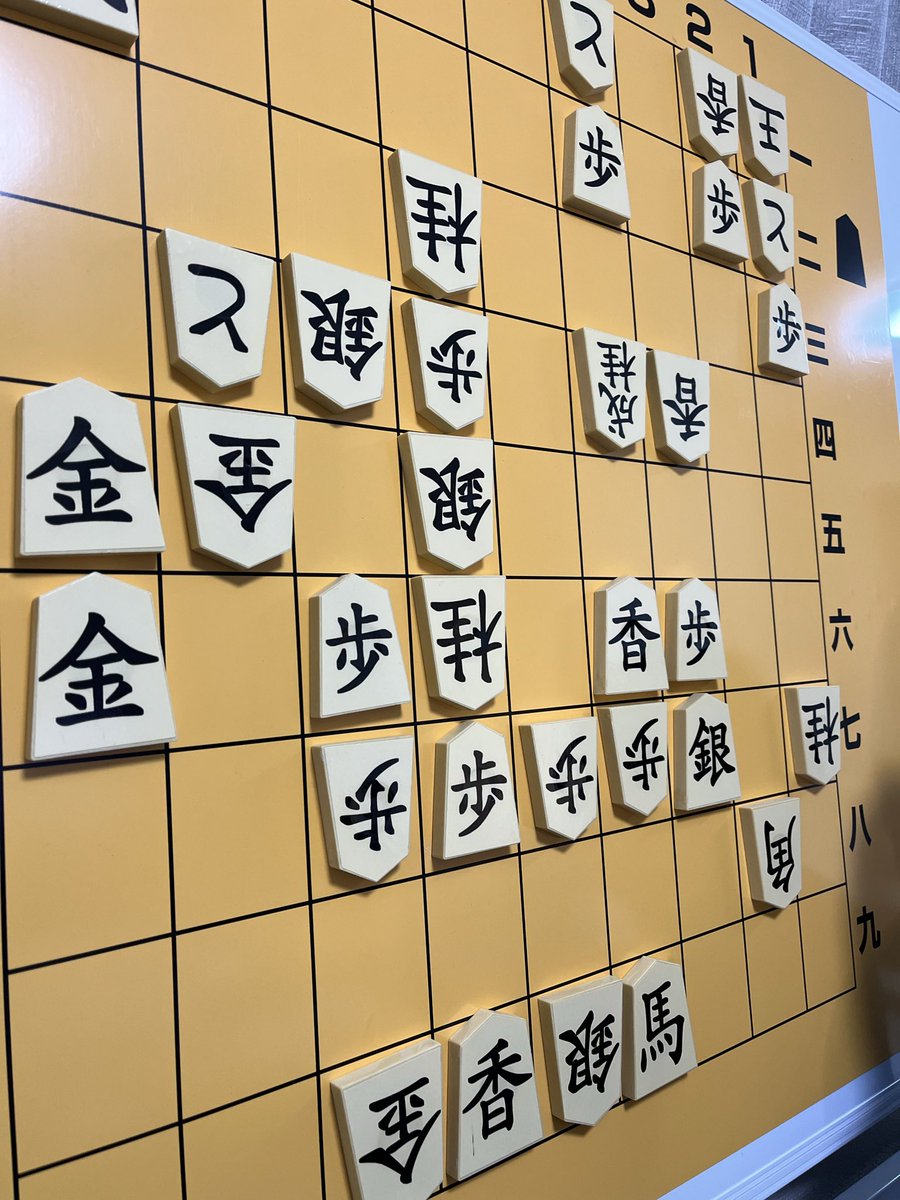 2 1
と 香 王 一
歩 歩 と 二
桂 歩 三
と 銀 歩 成桂 香 四
金 金 銀 五
金 歩 桂 香 歩 六
歩 歩 歩 歩 銀 桂 七
角 八
金 香 銀 馬 九